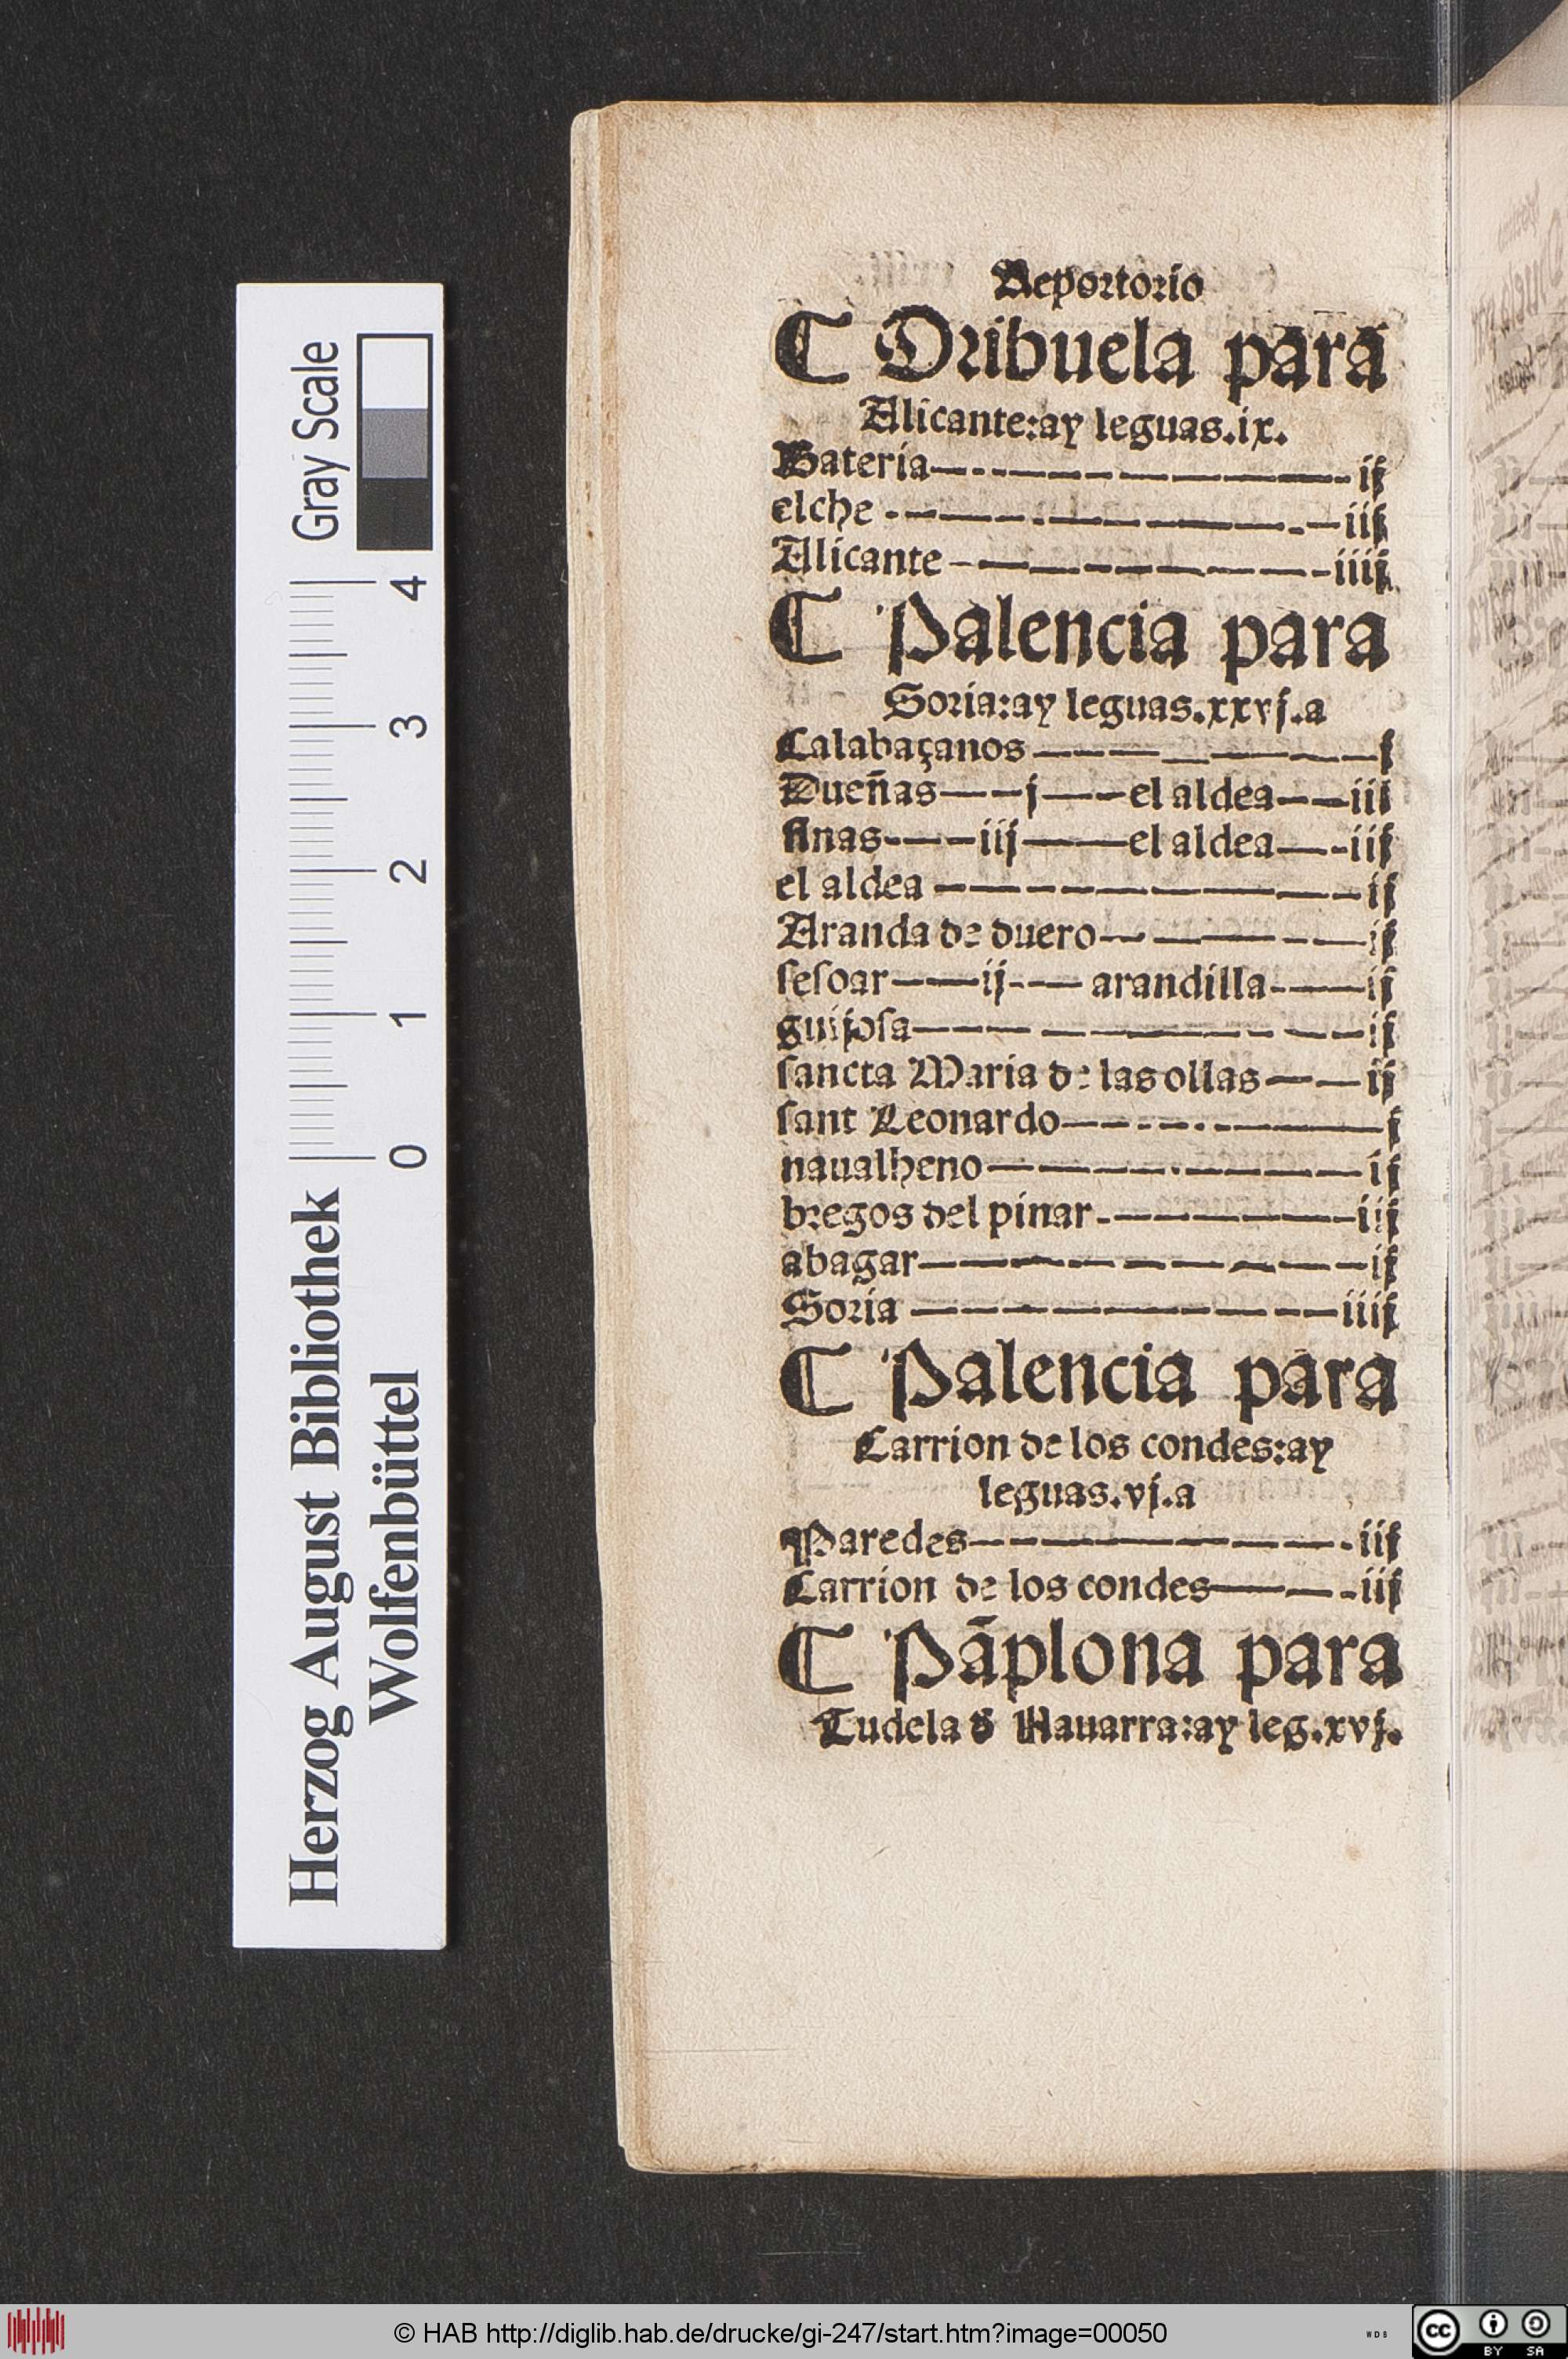 Reportorio
C Orihuela para
Alicante:ay leguas.ix.
Bateria ij
elche iij
Alicante iiij
C Palencia para
Soria:ay leguas.xxvj.a
Calabaçanos j
Dueñas j el aldea iij
finas iij el aldea iij
el aldea ij
Aranda de duero ij
sesoar ij arandilla ij
guijosa ij
sancta Maria de las ollas ij
sant Leonardo j
naualheno ij
bregos del pinar iij
abagar ij
Soria iiij
C Palencia para
Carrion de los condes:ay
leguas.vj.a
Paredes iij
Carrion de los condes iij
C Pãplona para
Tudela d̃ Nauarra:ay leg.xvj.
Herzog August Bibliothek
Wolfenbüttel
0 1 2 3 4
Gray Scale
© HAB http://diglib.hab.de/drucke/gi-247/start.htm?image=00050
WDB
cc
BY SA